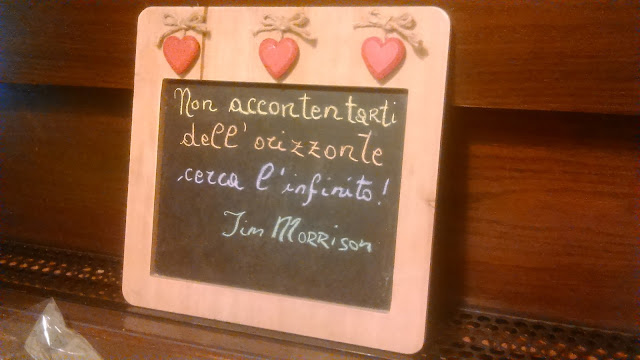 Non accontentarti
dell'orizzonte
cerca l'infinito!
Jim Morrison